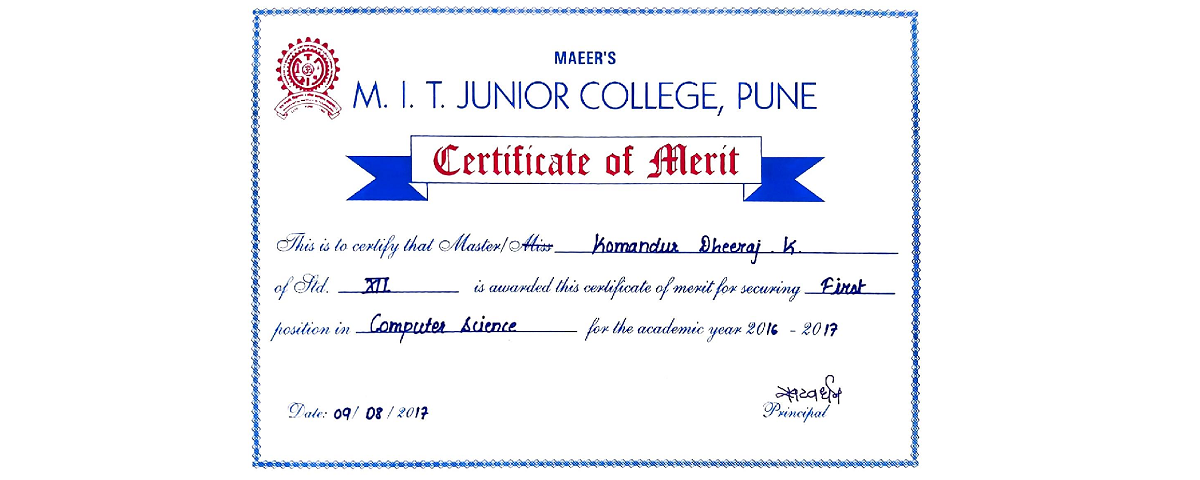 MAEER'S
M. I. T. JUNIOR COLLEGE, PUNE
Certificate of Merit
This is to certify that Master/Miss Komandur Dheeraj . K.
of Std. XII is awarded this certificate of merit for securing First
position in Computer Science for the academic year 2016 - 2017
Date: 09/ 08 / 2017
Principal